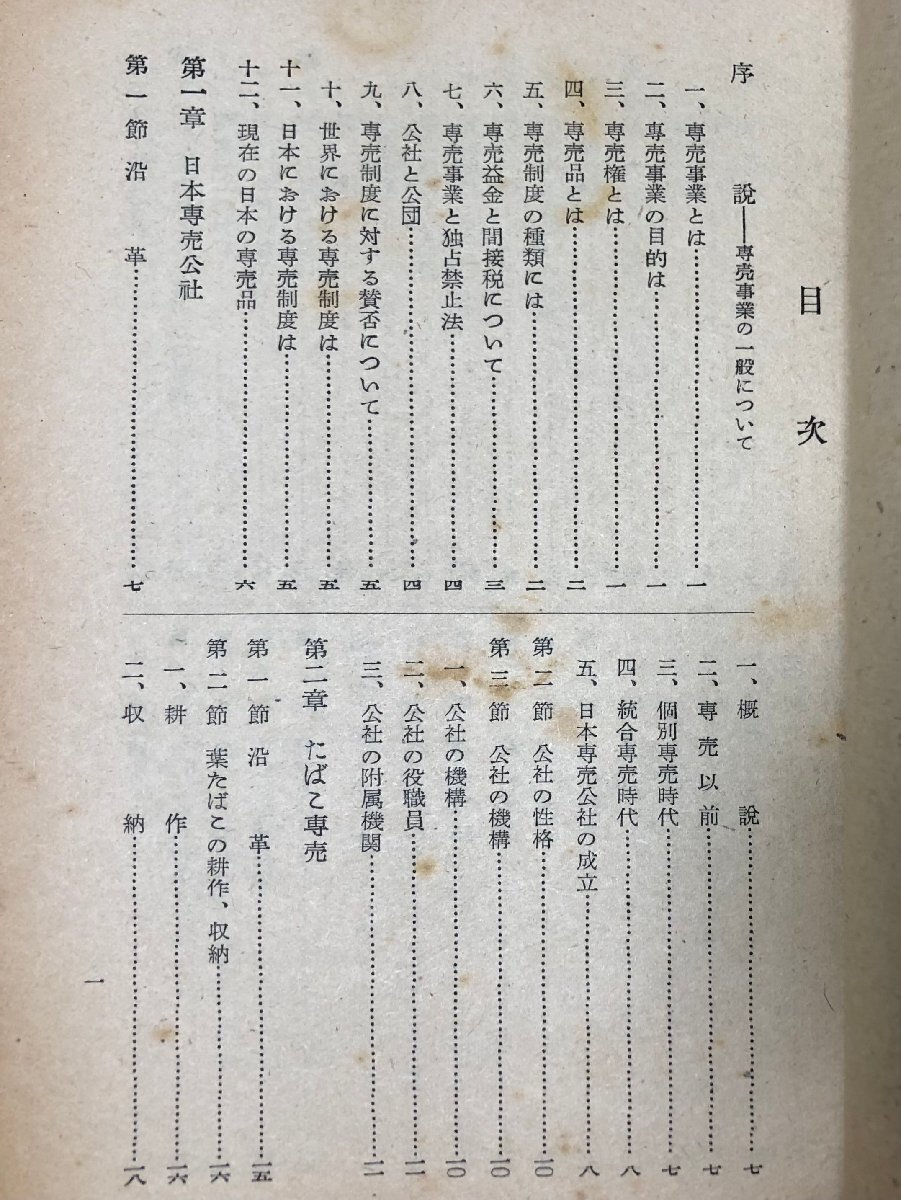 目次
序説――専売事業の一般について
一、専売事業とは……一
二、専売事業の目的は……一
三、専売権とは……一
四、専売品とは……二
五、専売制度の種類には……二
六、専売益金と間接税について……三
七、専売事業と独占禁止法……四
八、公社と公団……四
九、専売制度に対する賛否について……五
十、世界における専売制度は……五
十一、日本における専売制度は……五
十二、現在の日本の専売品……六
第一章 日本専売公社
第一節 沿革……七
一、概説……七
二、専売以前……七
三、個別専売時代……七
四、統合専売時代……八
五、日本専売公社の成立……八
第二節 公社の性格……一〇
第三節 公社の機構……一〇
一、公社の機構……一〇
二、公社の役職員……一一
三、公社の附属機関……一一
第二章 たばこ専売
第一節 沿革……一五
第二節 葉たばこの耕作、収納……一六
一、耕作……一六
二、収納……一八
一